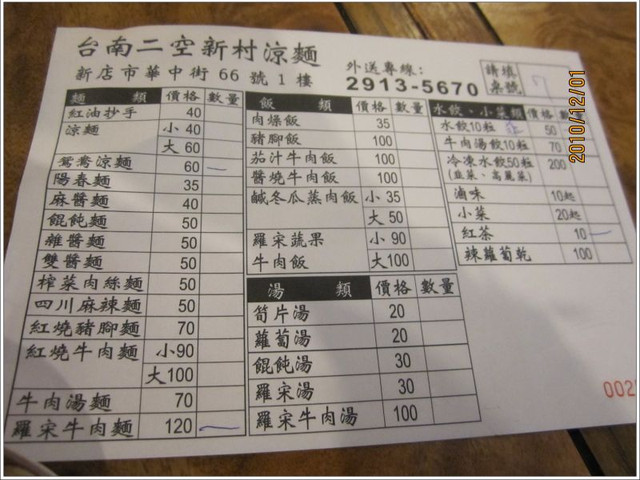 台南二空新村涼麵
新店市華中街 66 號 1 樓
外送專線:
2913-5670
請填
桌號
麵 類 價格 數量
紅油抄手 40
涼麵 小 40
大 60
鴛鴦涼麵 60
陽春麵 35
麻醬麵 40
餛飩麵 50
雜醬麵 50
雙醬麵 50
榨菜肉絲麵 50
四川麻辣麵 50
紅燒豬腳麵 70
紅燒牛肉麵 小90
大100
牛肉湯麵 70
羅宋牛肉麵 120
飯 類 價格 數量
肉燥飯 35
豬腳飯 100
茄汁牛肉飯 100
醬燒牛肉飯 100
鹹冬瓜蒸肉飯 小 35
大 50
羅宋蔬果 小 90
牛肉飯 大100
湯 類 價格 數量
筍片湯 20
蘿蔔湯 20
餛飩湯 30
羅宋湯 30
羅宋牛肉湯 100
水餃、小菜類 價格 數量
水餃10粒 50
牛肉湯餃10粒 70
冷凍水餃50粒 200
(韭菜、高麗菜)
滷味 10起
小菜 20起
紅茶 10
辣蘿蔔乾 100
002
2010/12/01